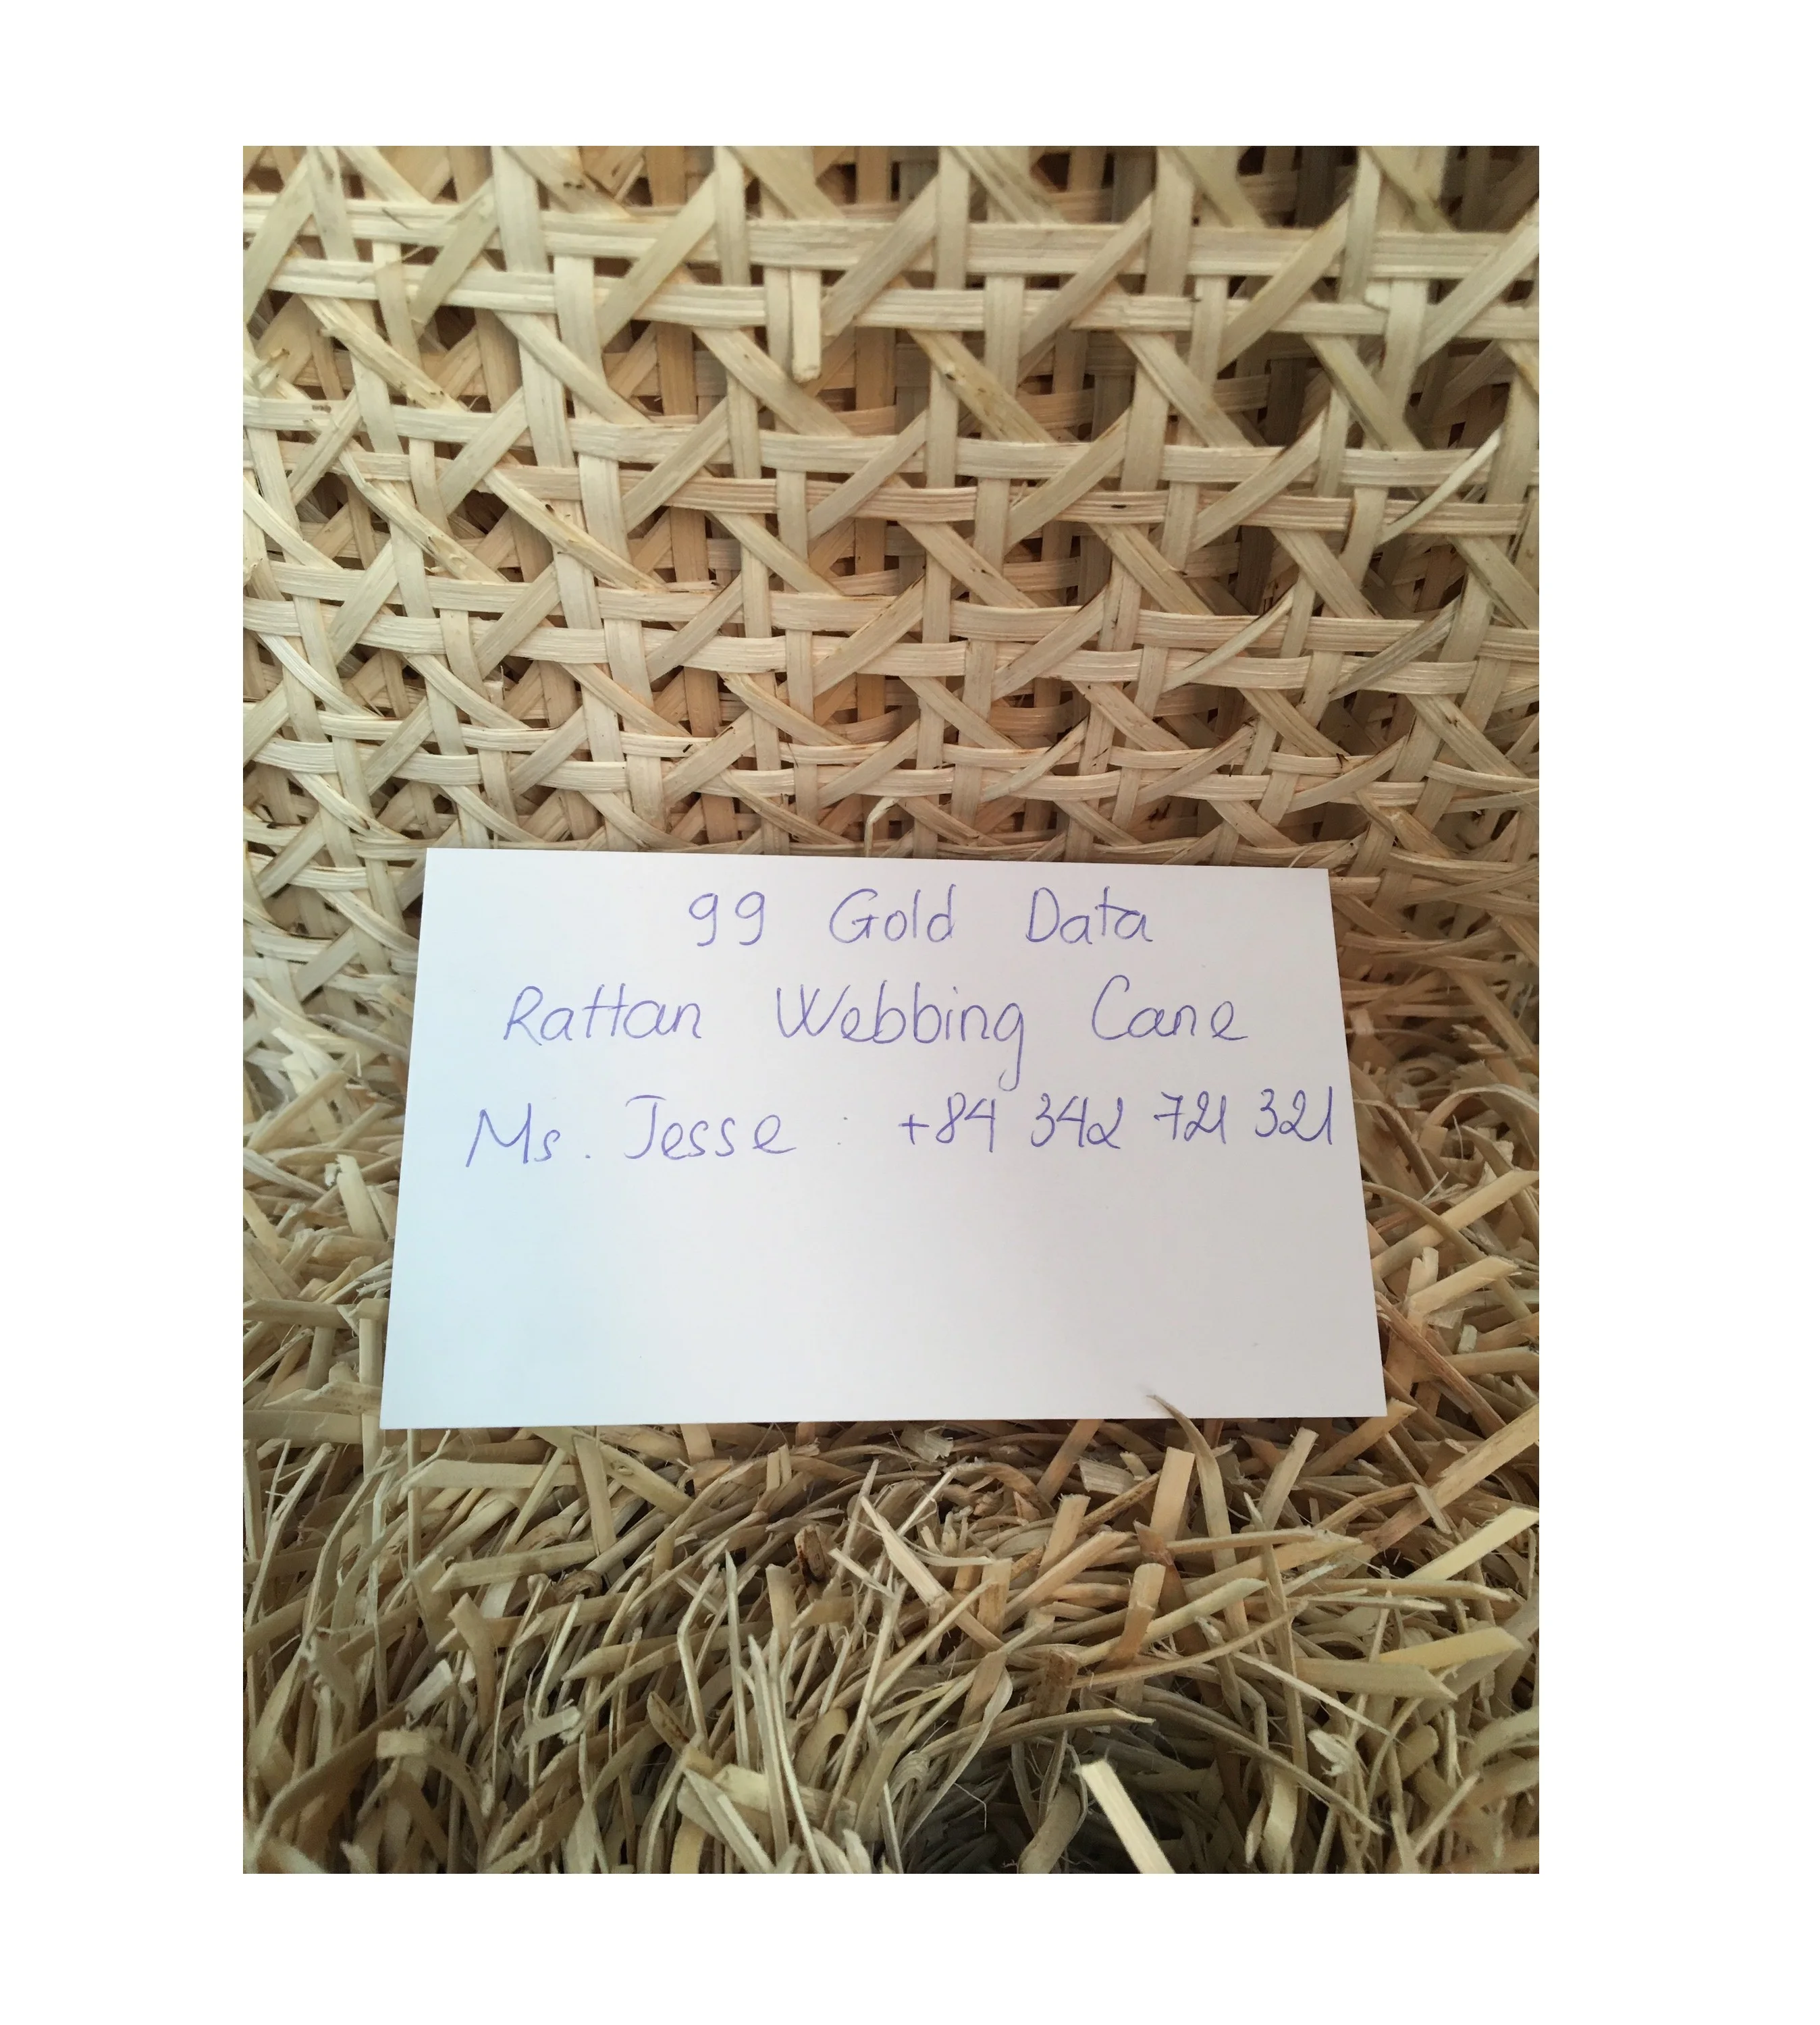 99 Gold Data
Rattan Webbing Cane
Ms. Jesse : +84 342 721 321